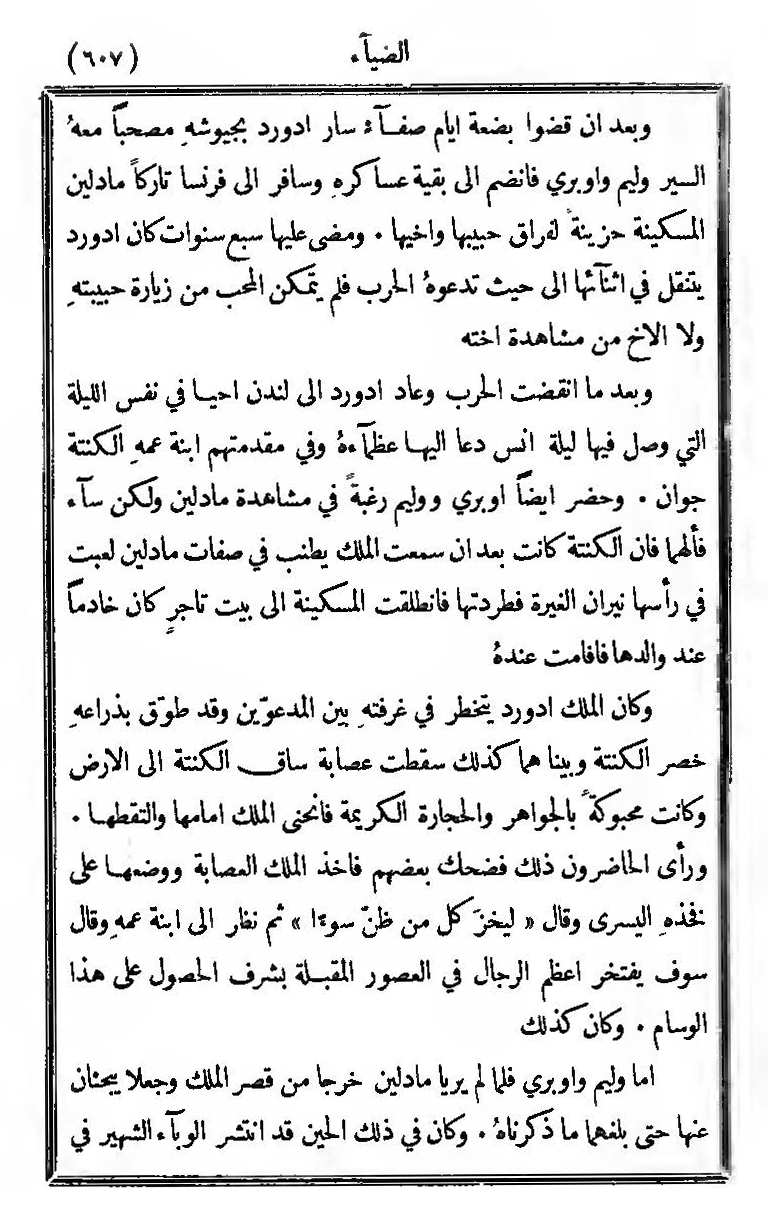 الضيآء (٦٠٧)
وبعد ان قضوا بضعة ايام صفآء سار ادورد بجيوشهِ مصحباً معهُ
السير وليم واوبري فانضم الى بقية عساكرهِ وسافر الى فرنسا تاركاً مادلين
المسكينة حزينةً لفراق حبيبها واخيها ٠ ومضى عليها سبع سنوات كان ادورد
يتنقل في اثنآئها الى حيث تدعوهُ الحرب فلم يتمكن المحب من زيارة حبيبتهِ
ولا الاخ من مشاهدة اخته
وبعد ما انقضت الحرب وعاد ادورد الى لندن احيا في نفس الليلة
التي وصل فيها ليلة انس دعا اليها عظمآءهُ وفي مقدمتهم ابنة عمهِ الكنتة
جوان ٠ وحضر ايضاً اوبري ووليم رغبةً في مشاهدة مادلين ولكن سآء
فألهما فان الكنتة كانت بعد ان سمعت الملك يطنب في صفات مادلين لعبت
في رأسها نيران الغيرة فطردتها فانطلقت المسكينة الى بيت تاجرٍ كان خادماً
عند والدها فاقامت عندهُ
وكان الملك ادورد يتخطر في غرفتهِ بين المدعوّين وقد طوّق بذراعهِ
خصر الكنتة وبينا هما كذلك سقطت عصابة ساق الكنتة الى الارض
وكانت محبوكةً بالجواهر والحجارة الكريمة فانحنى الملك امامها والتقطها ٠
ورأى الحاضرون ذلك فضحك بعضهم فاخذ الملك العصابة ووضعها على
فخذهِ اليسرى وقال « ليخزَ كل من ظنّ سوءًا » ثم نظر الى ابنة عمهِ وقال
سوف يفتخر اعظم الرجال في العصور المقبلة بشرف الحصول على هذا
الوسام ٠ وكان كذلك
اما وليم واوبري فلما لم يريا مادلين خرجا من قصر الملك وجعلا يبحثان
عنها حتى بلغهما ما ذكرناهُ ٠ وكان في ذلك الحين قد انتشر الوبآء الشهير في